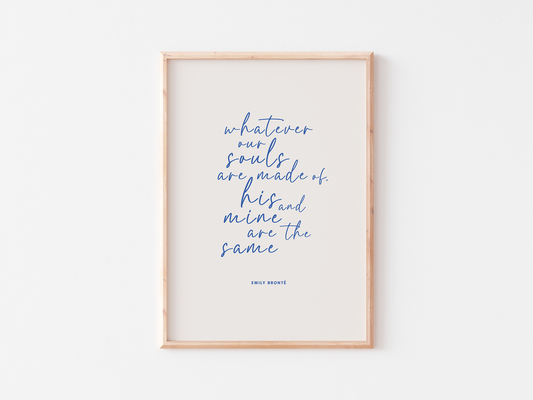 whatever
our
souls
are made of,
his and
mine
are the
same
EMILY BRONTË